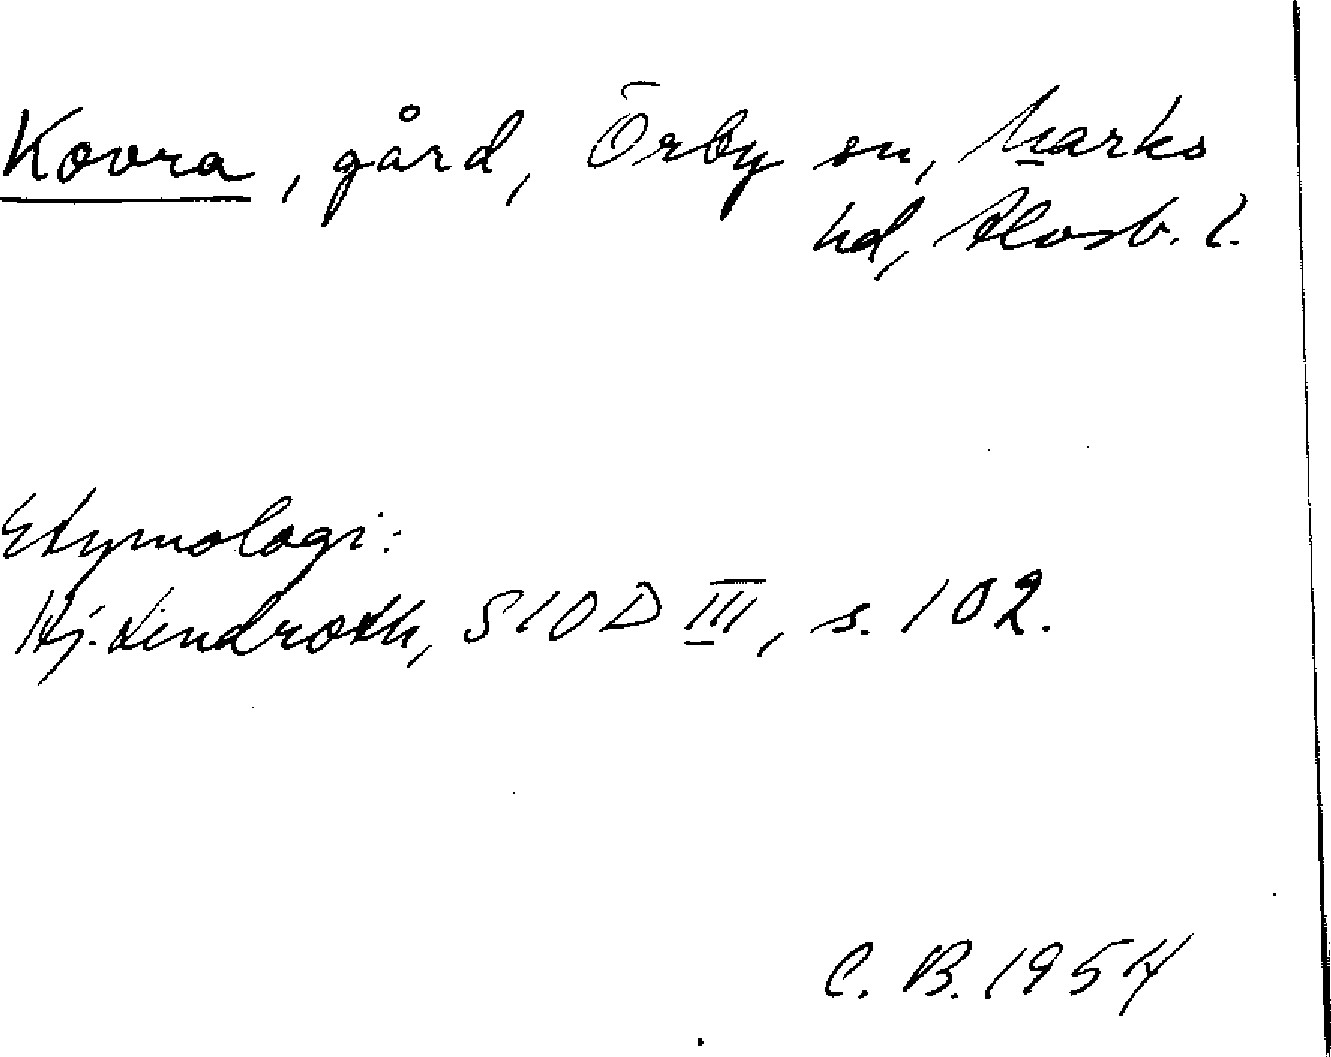 Kovra, gård, Örby sn, Marks
hd, Älvsb. l.
Etymologi:
Hj. Lindroth, SIOD III, s. 102.
C. B. 1954